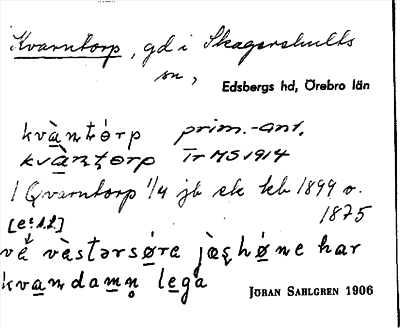 Kvarntorp, gd i Skagershults
sn,
Edsbergs hd, Örebro län
kvàn̠tórp prim.-ant.
kvàn̠torp Tr MS 1914
1 Qvarntorp 1/4 jb ek kb 1899 o.
1875
[e: s.l.]
ve västərsørə jæ̨hønə har
kvan̠damn̥ lega
JÖRAN SAHLGREN 1906